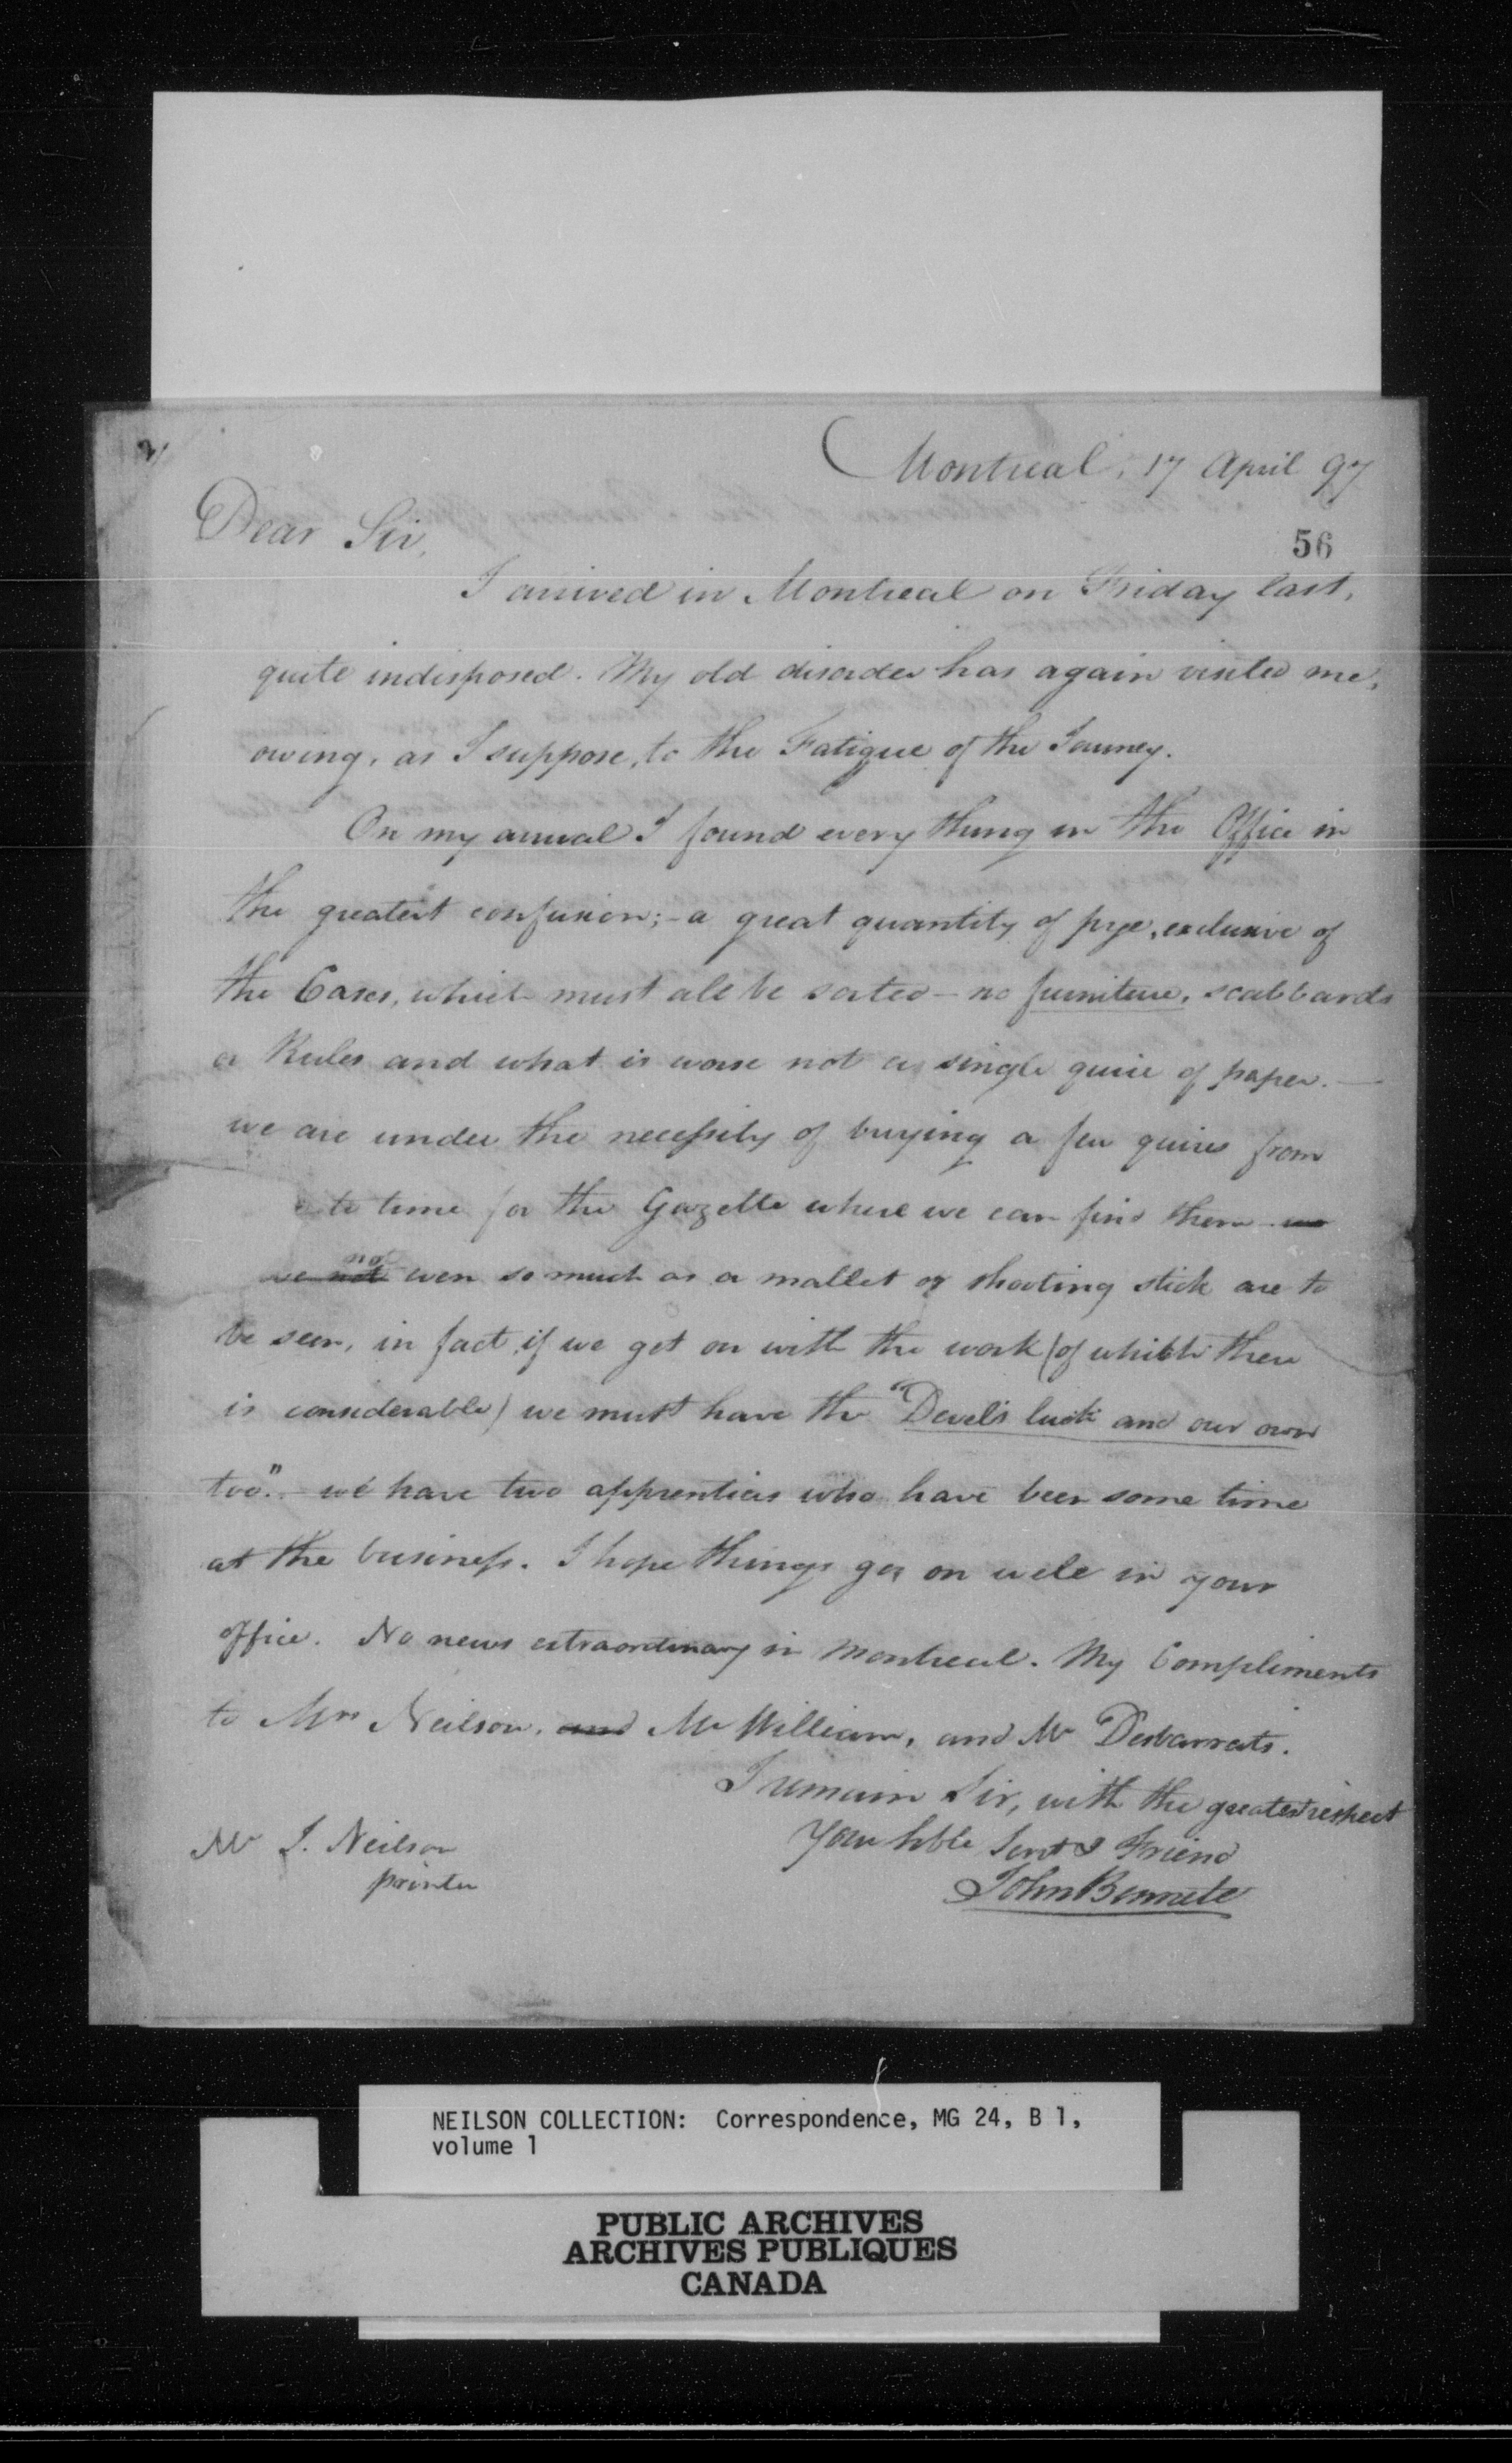 Montreal, 17 April 97
56
Dear Sir,
I arrived in Montreal on Friday last,
quite indisposed. My old disorder has again visited me,
owing, as I suppose, to the Fatigue of the Journey.
On my arrival I found every thing in the Office in
the greatest confusion;- a great quantity of pye, exclusive of
the Cases, which must all be sorted - no furniture, scabbards
or Rules and what is worse not a single quire of paper. —
we are under the necessity of buying a few quires from
to time for the Gazette where we can find them we
we not no even so much as a mallet or shooting stick are to
be seen, in fact, if we get on with the work (of which there
is considerable) we must have the "Devil's luck and our own
too". - we have two apprentices who have been some time
at the business. I hope things go on well in your
office. No news extraordinary in Montreal. My Compliments
to Mrs Neilson, and Mr William, and Mr Desbarrats.
I remain Sir, with the greatest respect
Your hble Servt & Friend
John Bennett
Mr J. Neilson
printer
NEILSON COLLECTION: Correspondence, MG 24, B 1,
volume 1
PUBLIC ARCHIVES
ARCHIVES PUBLIQUES
CANADA